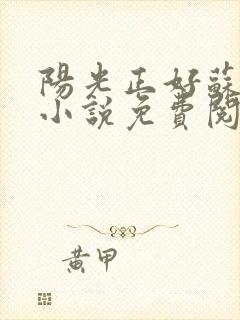 陽光正好蘇
小說免費閱
黃甲